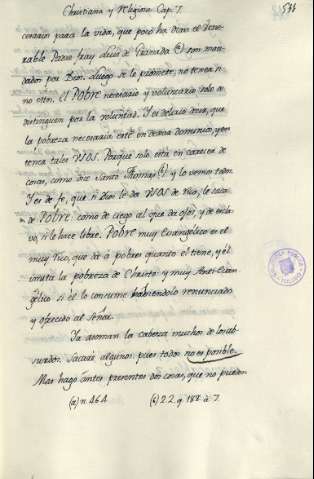 Christiana y Religiosa Cap. I.
cesario para la vida, que poco ha dixo el Vene-
rable Padre fray Luis de Granada (a) son man-
dados por Dios. Luego de lo primero, no tenea si
no otro. El POBRE necesario y voluntario solo se
distinguen por la voluntad. Y es delirio decir, que
la pobreza necesaria esté un dedo dominio, y
tenea tales VSOS. Porque solo está en carecer de
cosas, como dice Santo Thomas (b) y lo vemos todos.
Y es de fe, que si dios le da VSOS de Rico, le saca
de POBRE: como de ciego al que da ojos, y de escla-
vo, si le hace libre. POBRE muy Evangelico es el
muy Rico, que da à pobres quanto el tiene, y él
imita la pobreza de Christo: y muy Anti-Evan-
gélico si él lo consume habiendolo renunciado
y ofrecido al Señor.
Ya asoman la cabeza muchos de los
surdos. Sacaré algunos: pues todos no es posible.
Mas hago antes presentes dos cosas, que no pueden
(a) n. 464 (b) 2 2 q 188 à 7